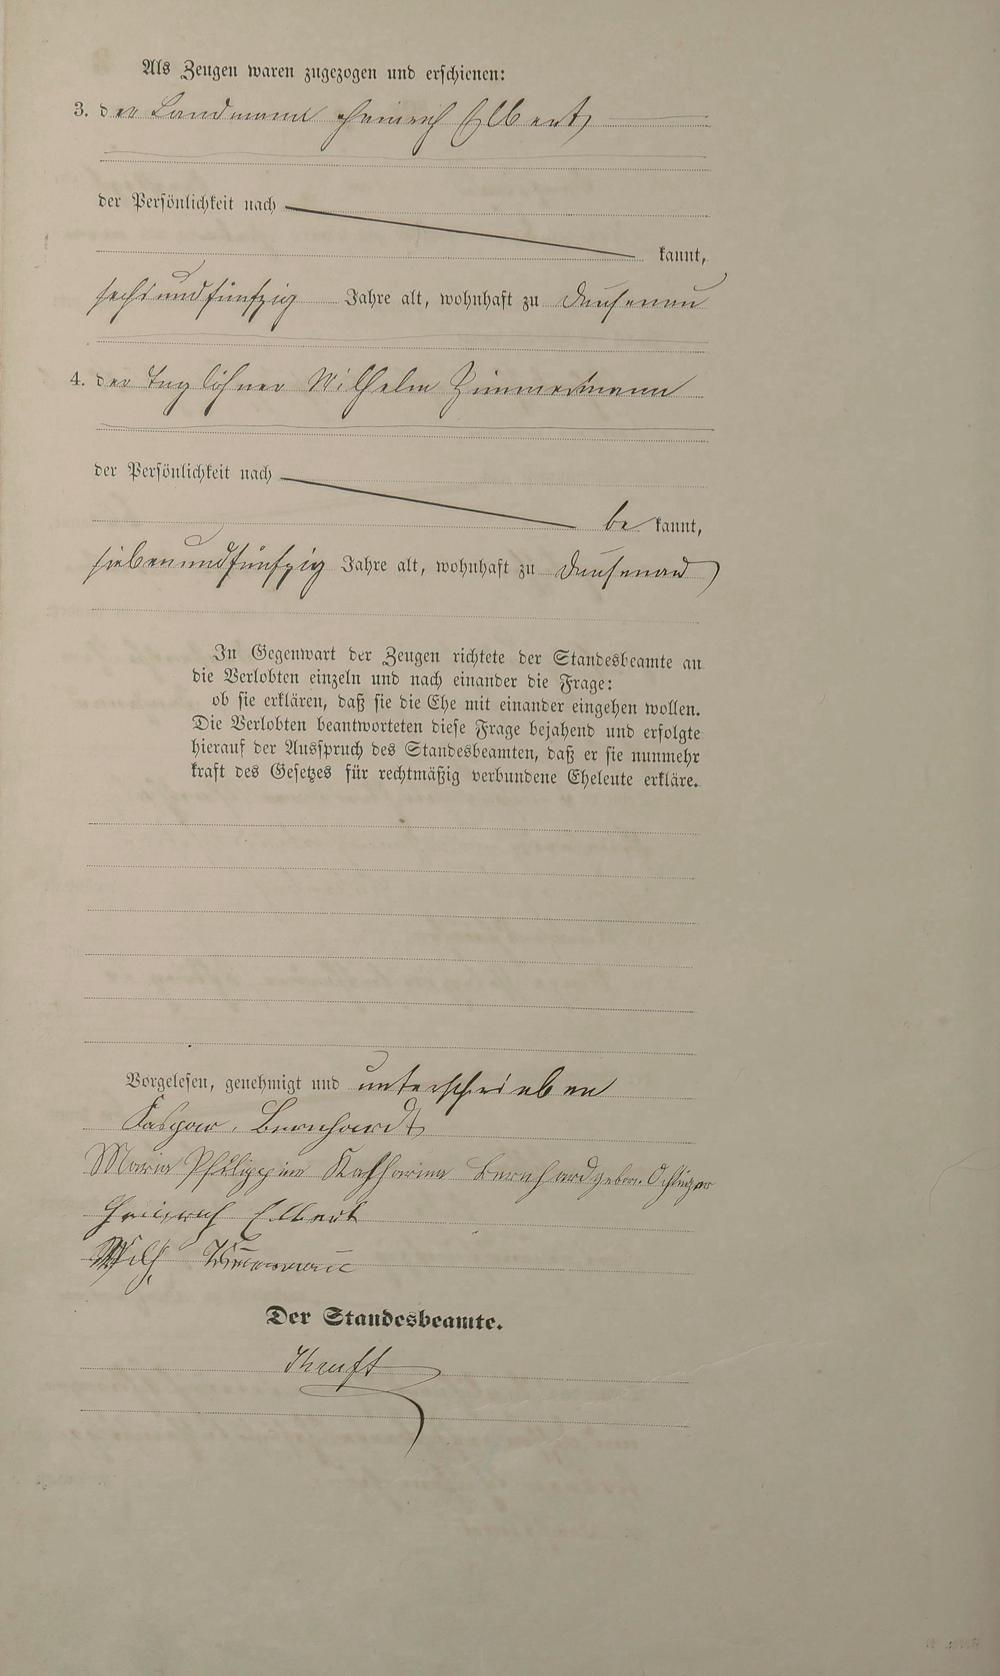 Als Zeugen waren zugezogen und erschienen:
3. der Landmann Heinrich Elbert
der Persönlichkeit nach
kannt,
sechsundfünfzig Jahre alt, wohnhaft zu Dausenau
4. der Taglöhner Wilhelm Zimmermann
der Persönlichkeit nach
be kannt,
siebenundfünfzig Jahre alt, wohnhaft zu Dausenau
In Gegenwart der Zeugen richtete der Standesbeamte an
die Verlobten einzeln und nach einander die Frage:
ob sie erklären, daß sie die Ehe mit einander eingehen wollen.
Die Verlobten beantworteten diese Frage bejahend und erfolgte
hierauf der Ausspruch des Standesbeamten, daß er sie nunmehr
kraft des Gesetzes für rechtmäßig verbundene Eheleute erkläre.
Vorgelesen, genehmigt und unterschrieben
Kaspar Bernhardt
Maria Philippine Katharina Bernhard
Heinrich Elbert
Wilh. Zimmermann
Der Standesbeamte.